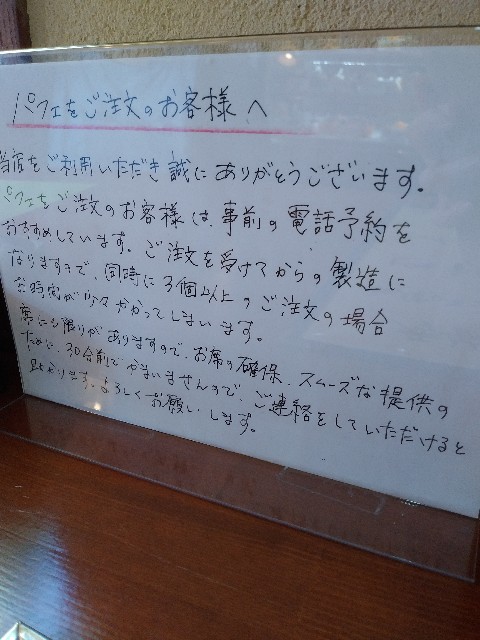 パフェをご注文のお客様へ
当店をご利用いただき誠にありがとうございます。
パフェをご注文のお客様は、事前の電話予約を
おすすめしています。ご注文を受けてからの製造に
なりますので、同時に3個以上のご注文の場合
お時間が少々かかってしまいます。
席にも限りがありますので、お席の確保、スムーズな提供の
ために、30分前でかまいませんので、ご連絡をしていただけると
助かります。よろしくお願いします。